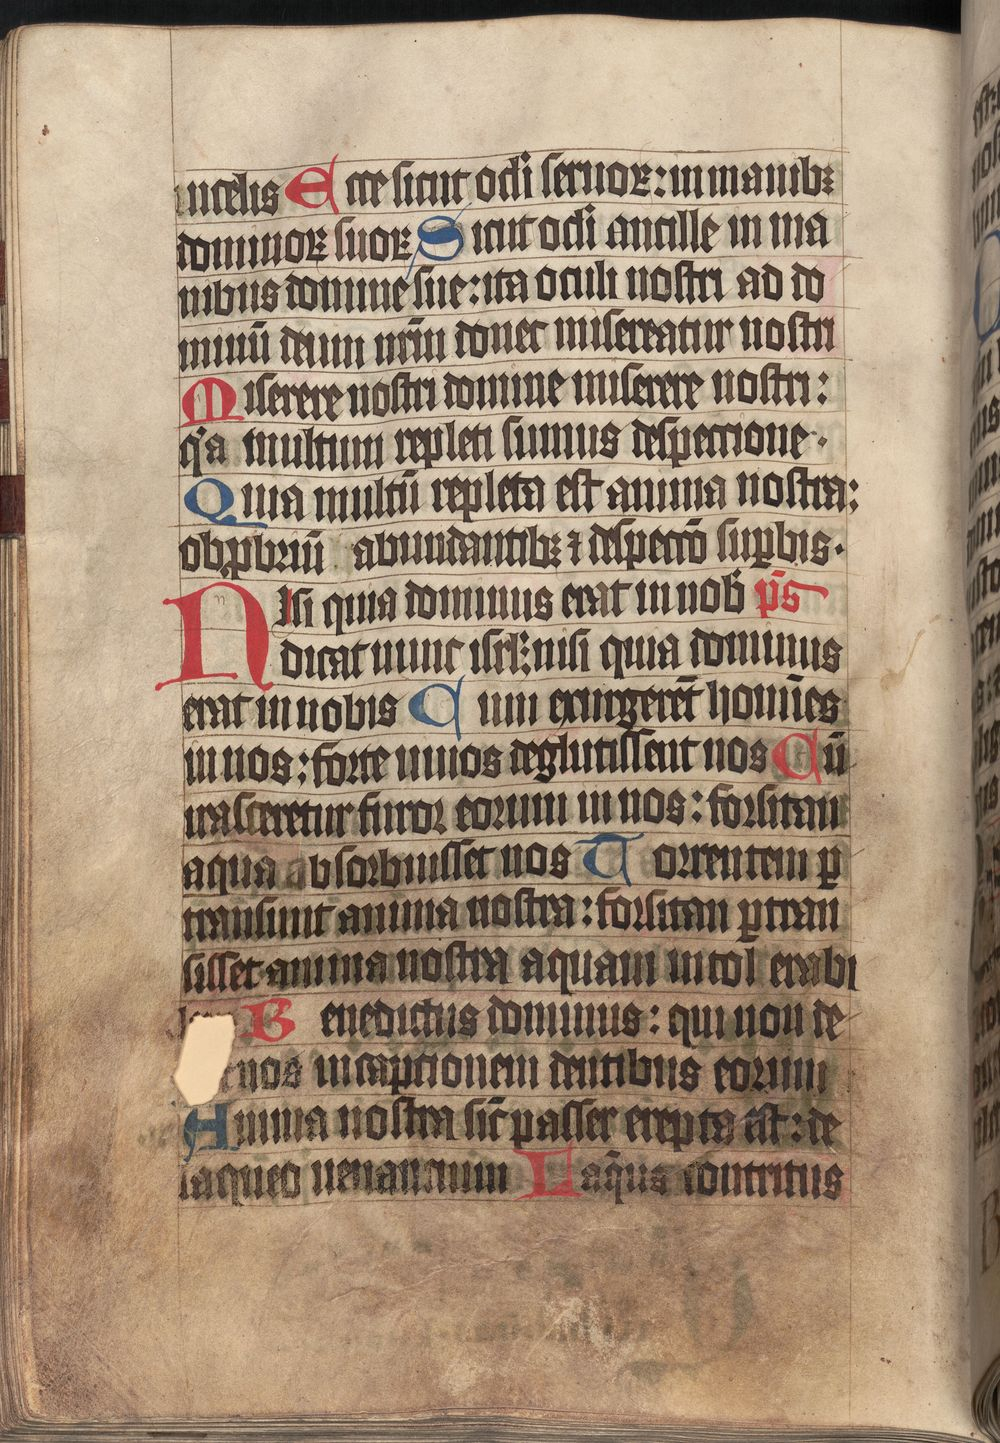 in celis Ecce sicut ocl̄i seruoꝝ: in manibꝫ
dominoꝝ suoꝝ Sicut ocl̄i ancille in ma
nibus domine sue: ita oculi nostri ad do
minū deum nr̄m donec misereatur nostri
Miserere nostri domine miserere nostri:
qͥa multum repleti sumus despectione.
Quia multū repleta est anima nostra:
obꝓbriū abundantibꝫ ⁊ despectō suꝑbis.
Nisi quia dominus erat in nob̄ ps̄
dicat nunc isrl̄: nisi quia dominus
erat in nobis Cum exurgerēt homīes
in nos: forte uiuos deglutissent nos Cū
irasceretur furor eorum in nos: forsitan
aqua absorbuisset nos Torrentem ꝑ
transiuit anima nostra: forsitan ꝑtran
sisset anima nostra aquam intol erabi
Benedictus dominus: qui non de
nos in captionem dentibus eorum
Anima nostra sic̄ passer erepta ēst: de
laqueo uenantium Laq̄us contritus